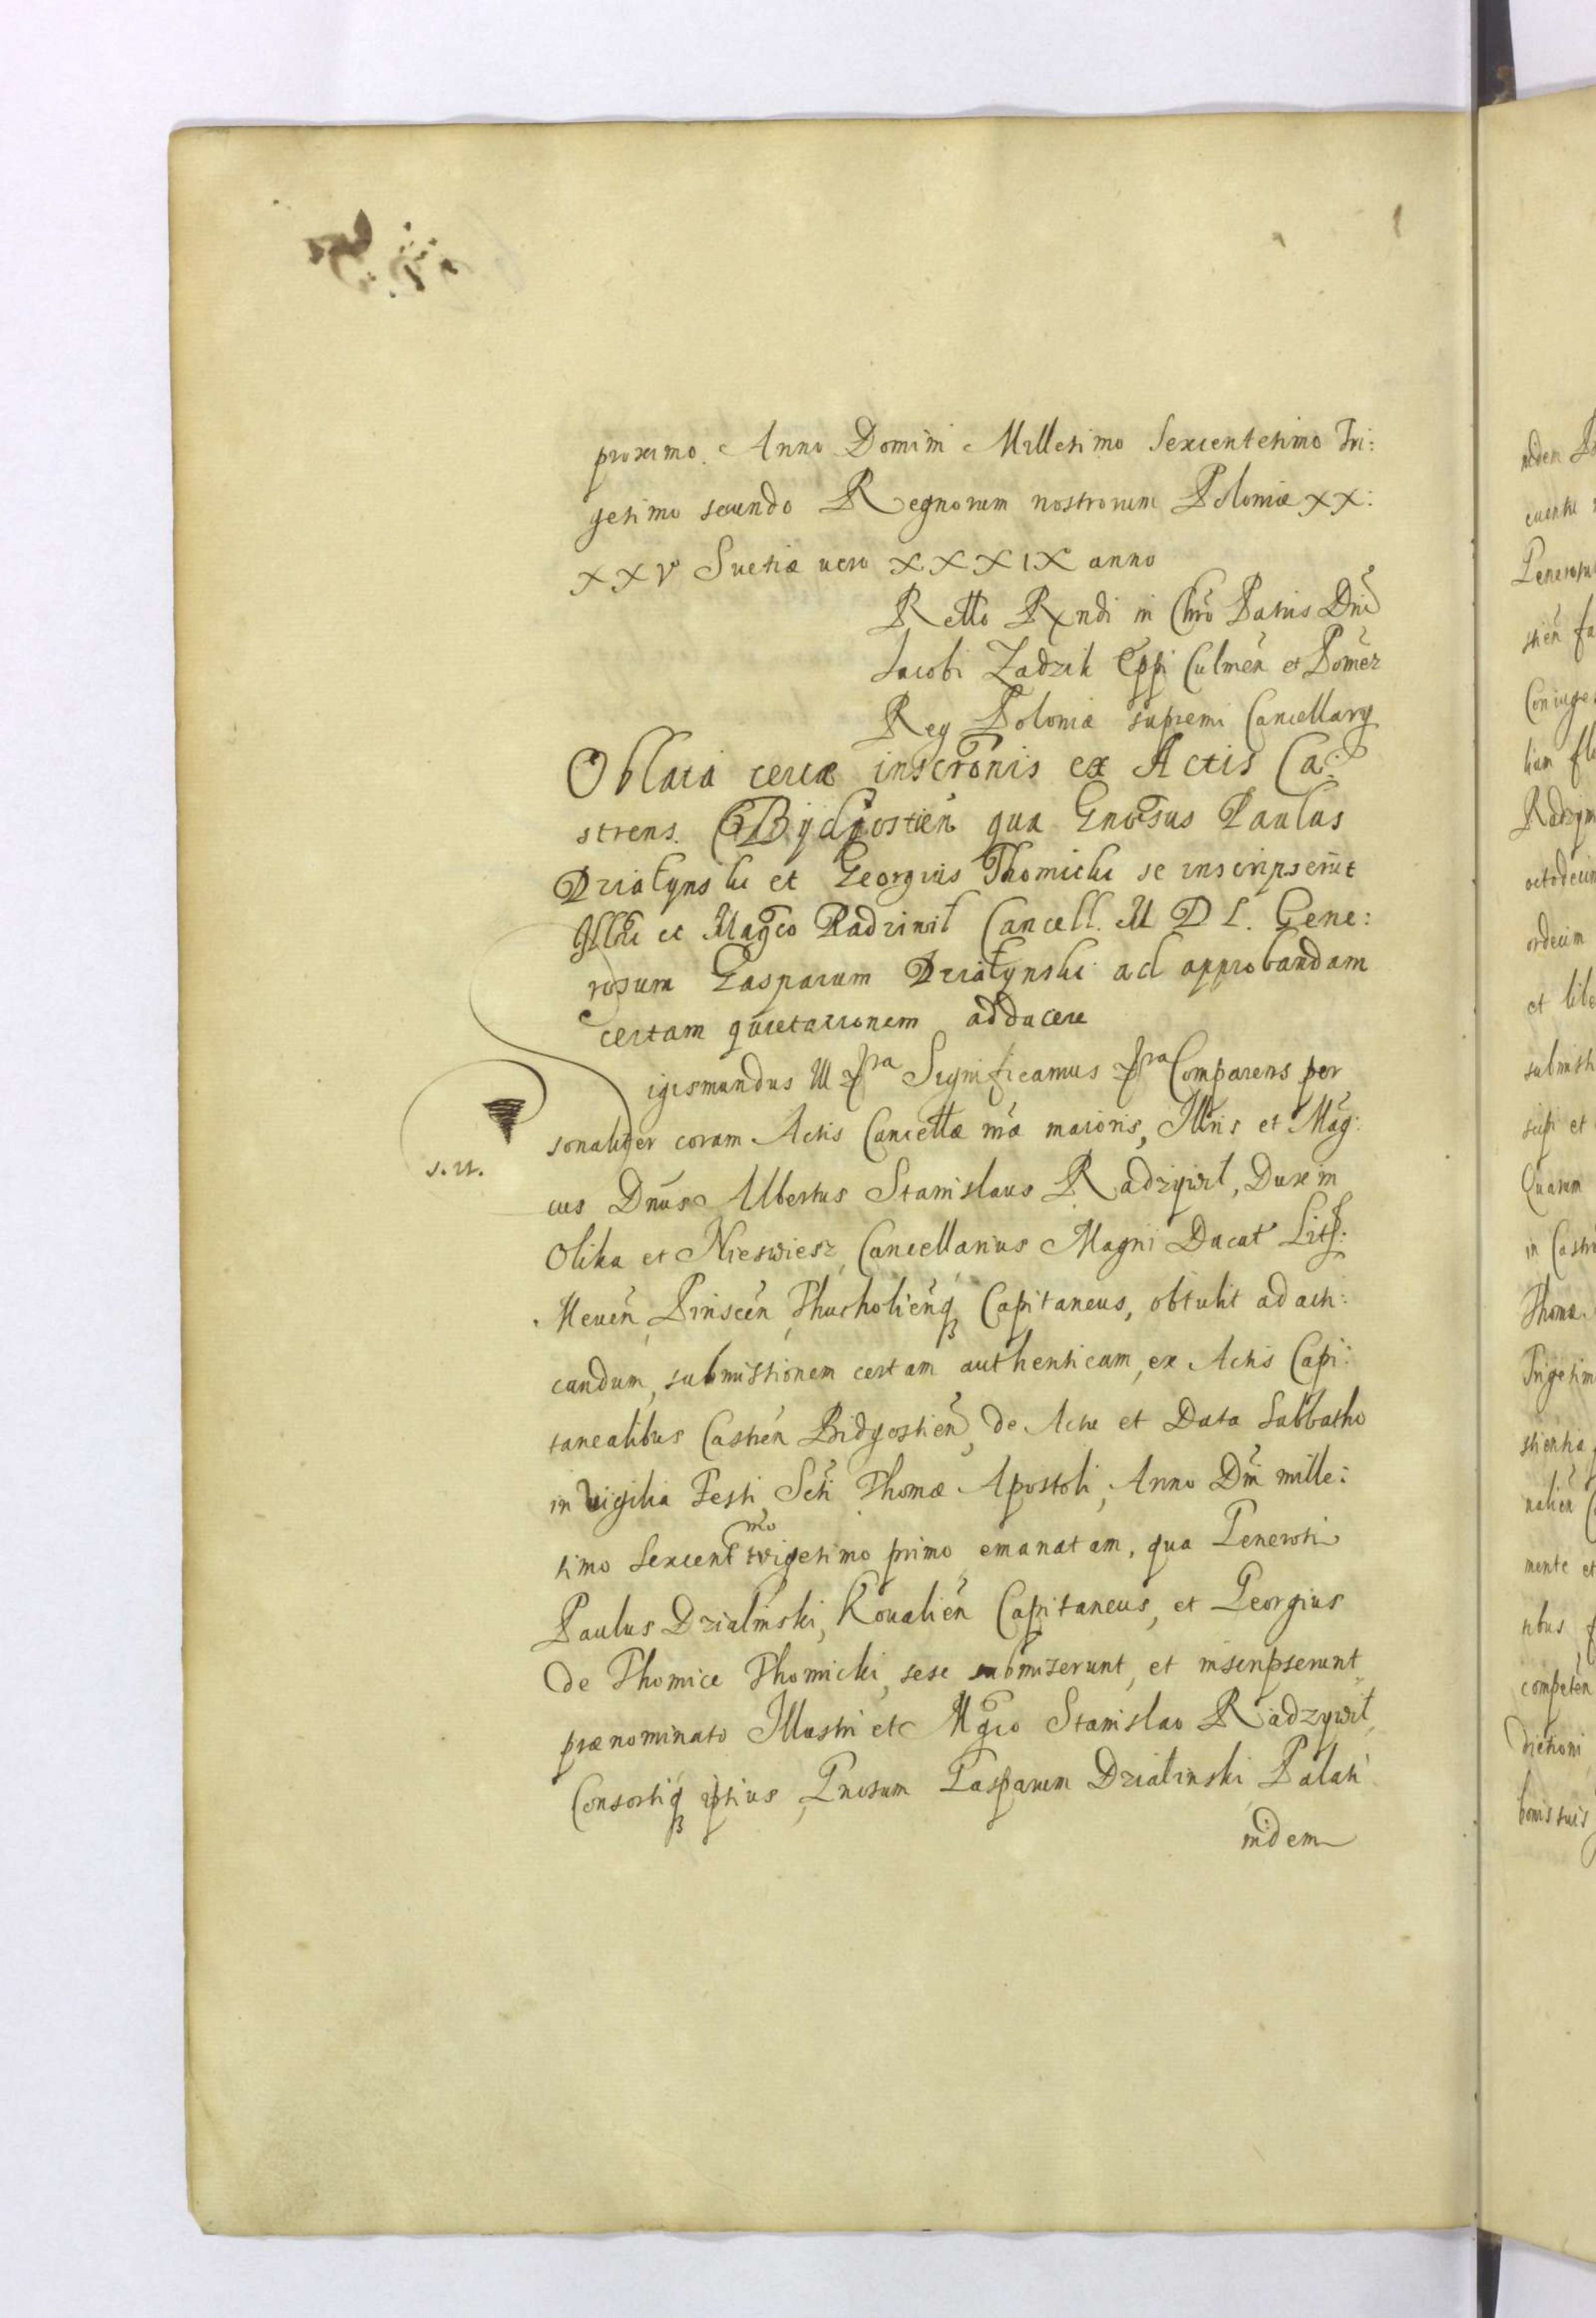 proximo. Anno Domini Millesimo Sexcentesimo Tri:
gesimo secundo Regnorum nostrorum Poloniæ XX:
XXV Suetiæ uero XXXIX anno
Retto Rxndi in Chrō Patris Dni
Iacobi Zadzik Eppi Culmēn et Pomēr
Reg Poloniæ supremi Cancellarÿ
Oblata certæ inscrōnis ex Actis Ca:
strens. Bydgostien qua Gnōsus Paulus
Dziatynski et Georgius Thomicki se inscripserūt
Illri et Magco Radziwił Cancell. M D L. Gene:
rosum Gasparum Dziatynski ad approbandam
certam quietationem adducere
igismundus III &ra Significamus &ra Comparens per
sonaliter coram Actis Cancellæ mā maioris, Illris et Mag:
cus Dnūs Albertus Stanislaus Radzywił, Dux in
Olika et Nieswiesz, Cancellarius Magni Ducat Litħ:
Meuēn, Pinscēn, Thucholiēnq Capitaneus, obtulit ad acti:
candum, submissionem certam authenticam, ex Actis Capi:
tanealibus Castrēn Bidgostiēn, de Actu et Data Sabbatho
in Vigilia Festi Scti Thomæ Apostoli, Anno Dni mille:
simo Sexcent mo trigesimo primo emanatam, qua Generosi
Paulus Dzialinski, Koualiēn Capitaneus, et Georgius
de Thomice Thomicki, sese submiserunt, et inscripserunt
prænominato Illustri et Mgco Stanislao Radzywił,
Consortiq ipsius, Gnosum Gasparum Dzialinski Palati
nidem
S. R.